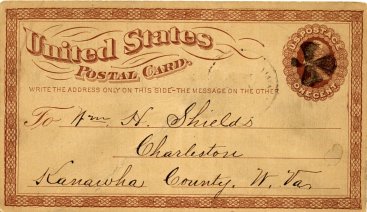 United States
Postal Card.
U.S. POSTAGE
ONE CENT
WRITE THE ADDRESS ONLY ON THIS SIDE-THE MESSAGE ON THE OTHER
To Wm H. Shields
Charleston
Kanawha County, W. Va